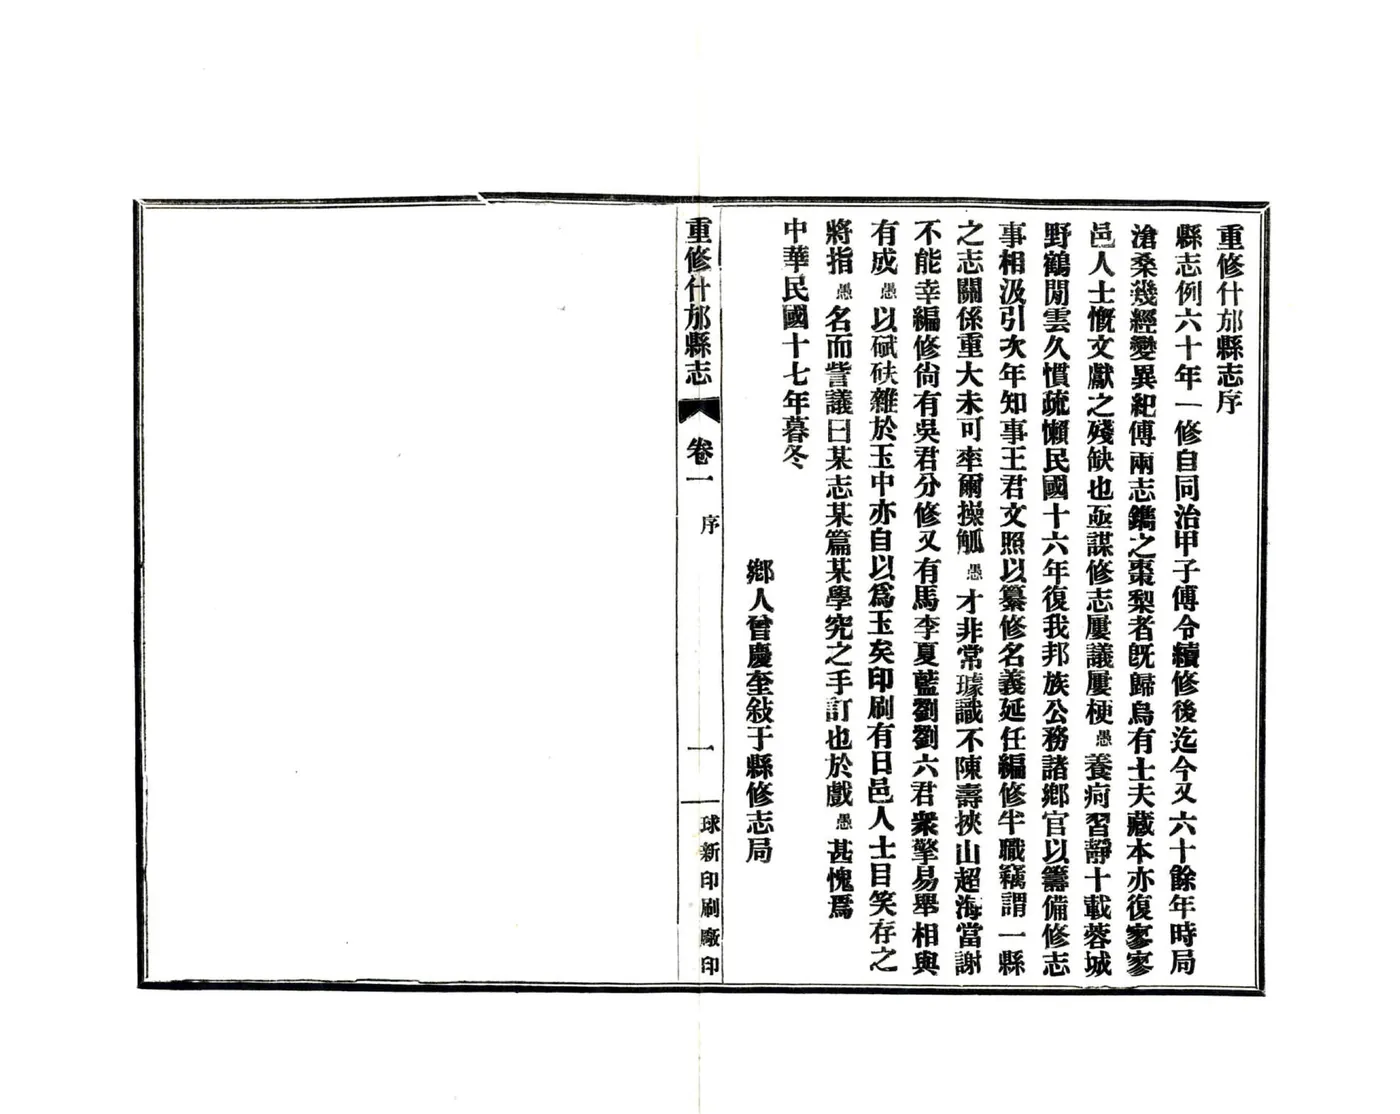 重修什邡縣志序
縣志例六十年一修自同治甲子傅令續修後迄今又六十餘年時局
滄桑幾經變異紀傅兩志鐫之棗梨者旣歸烏有士夫藏本亦復寥寥
邑人士慨文獻之殘缺也亟謀修志屢議屢梗愚養疴習靜十載蓉城
野鶴閒雲久慣疏懶民國十六年復我邦族公務諸鄉官以籌備修志
事相汲引次年知事王君文照以纂修名義延任編修半職竊謂一縣
之志關係重大未可率爾操觚愚才非常璩識不陳壽挾山超海當謝
不能幸編修尙有吳君分修又有馬李夏藍劉劉六君衆擎易舉相與
有成愚以碔砆雜於玉中亦自以爲玉矣印刷有日邑人士目笑存之
將指愚名而訾議曰某志某篇某學究之手訂也於戲愚甚愧焉
中華民國十七年暮冬
鄉人曾慶奎敍于縣修志局
重修什邡縣志
卷一
序
一
球新印刷廠印